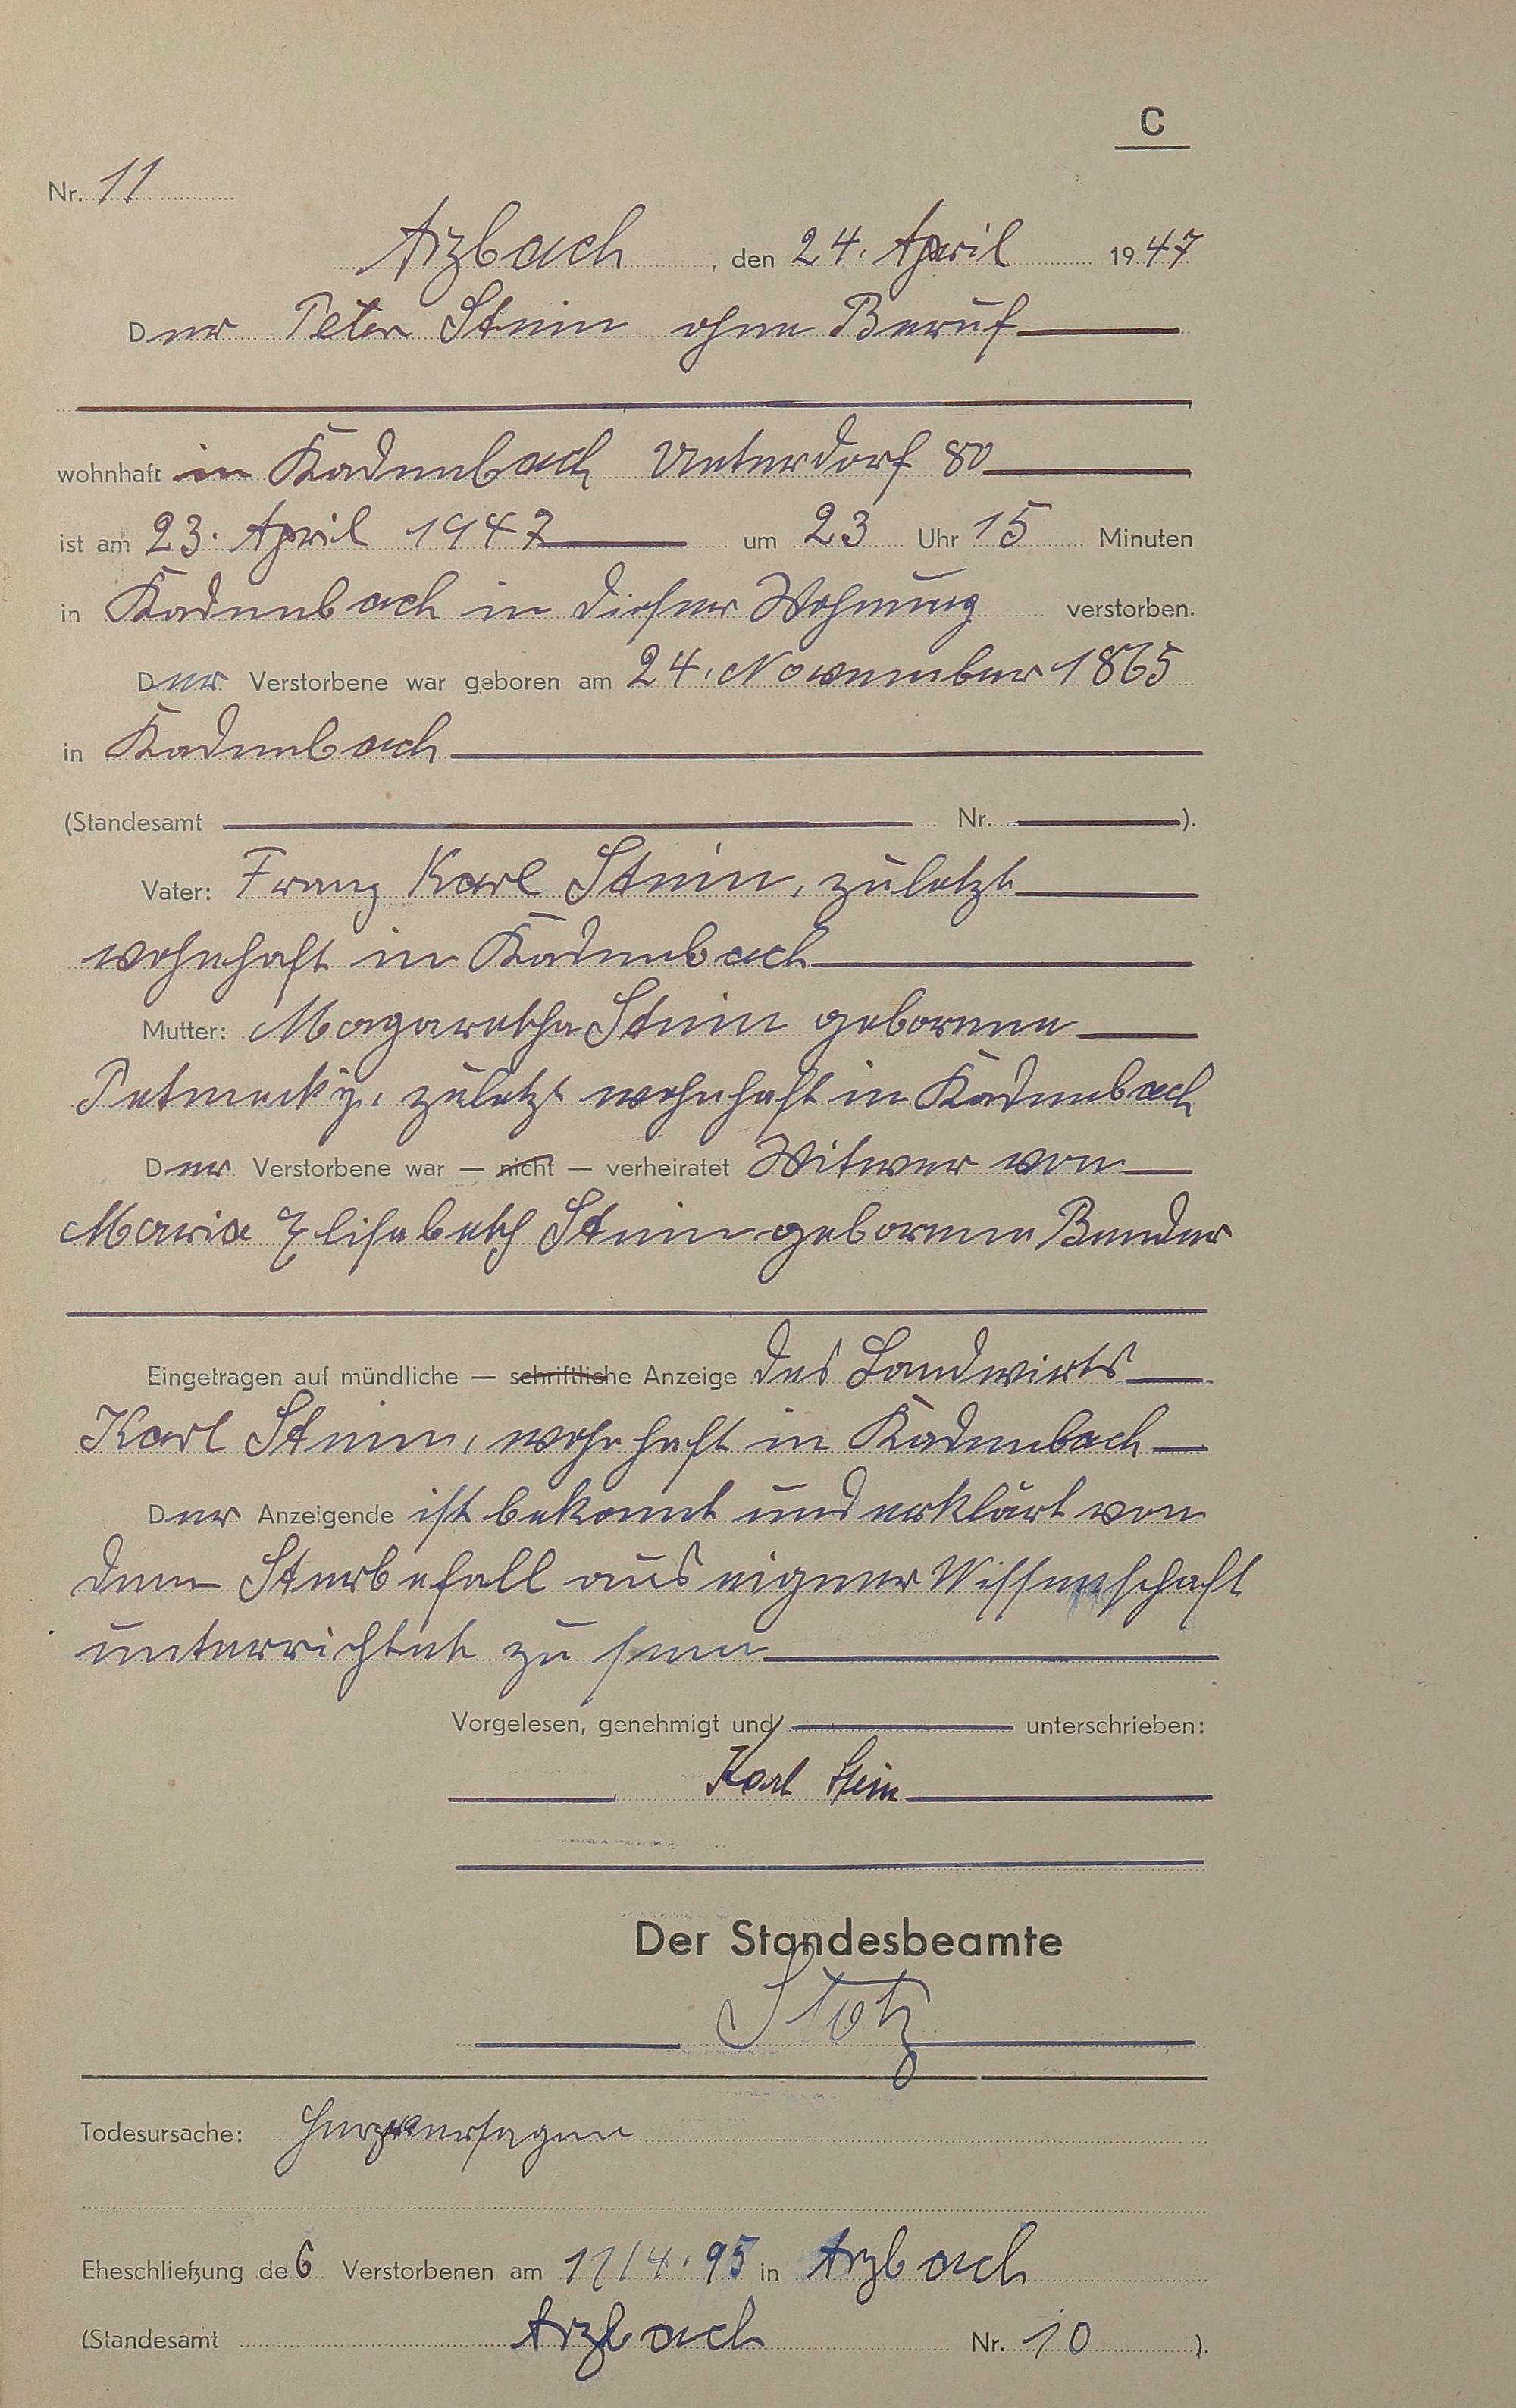 C
Nr. 11
Arzbach, den 24. April 1947
Der Peter Stein ohne Beruf
wohnhaft in Kadenbach Unterdorf 80
ist am 23. April 1947 um 23 Uhr 15 Minuten
in Kadenbach in dieser Wohnung verstorben.
Der Verstorbene war geboren am 24. November 1865
in Kadenbach
(Standesamt Nr. ).
Vater: Franz Karl Stein, zuletzt
wohnhaft in Kadenbach
Mutter: Magaretha Stein geborene
Petmecky, zuletzt wohnhaft in Kadenbach
Der Verstorbene war — nicht — verheiratet Witwer von
Maria Elisabeth Stein geborene Bender
Eingetragen auf mündliche — schriftliche Anzeige des Landwirts
Karl Stein, wohnhaft in Kadenbach
Der Anzeigende ist bekannt und erklärt von
dem Sterbefall aus eigener Wissenschaft
unterrichtet zu sein
Vorgelesen, genehmigt und unterschrieben:
Karl Stein
Der Standesbeamte
Stotz
Todesursache: Herzversagen
Eheschließung des Verstorbenen am 17/4.95 in Arzbach
(Standesamt Arzbach Nr. 10 ).